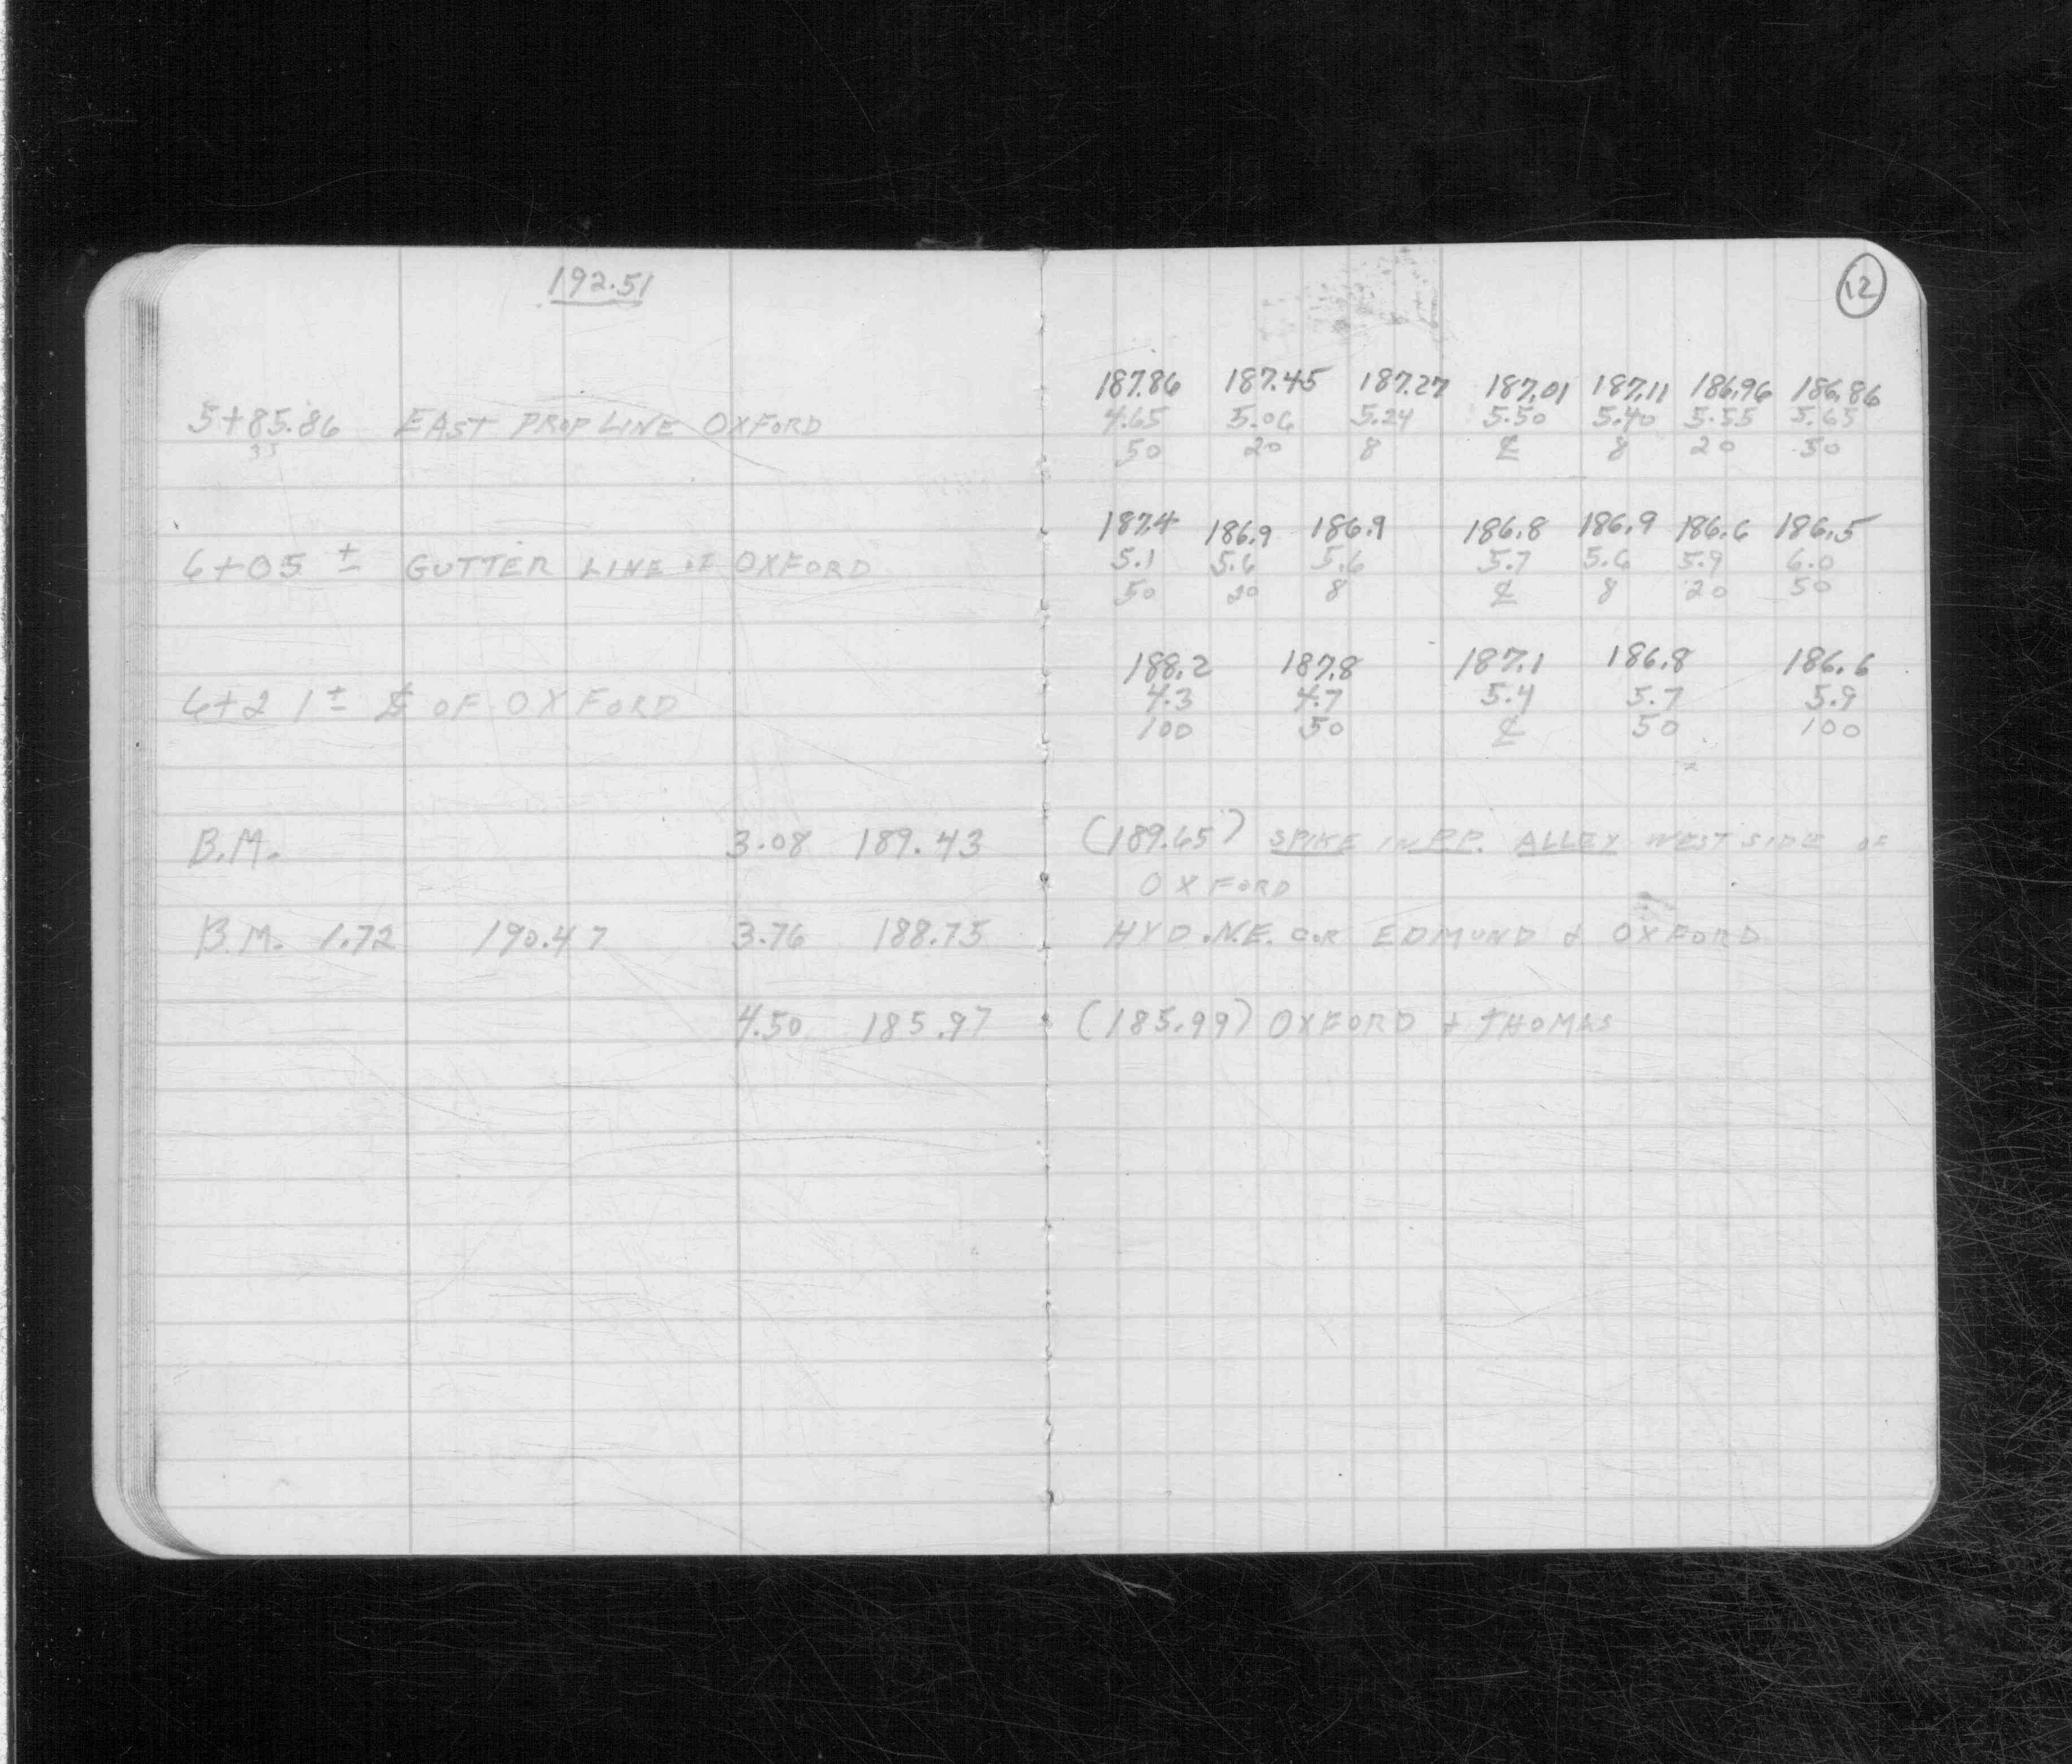 192.51
12
187.86 187.45 187.27 187.01 187.11 186.96 186.86
5+85.86 EAST PROP LINE OXFORD 4.65 5.06 5.24 5.50 5.40 5.55 5.65
50 20 8 ℄ 8 20 50
187.4 186.9 186.9 186.8 186.9 186.6 186.5
6+05 ± GUTTER LINE OF OXFORD 5.1 5.6 5.6 5.7 5.6 5.9 6.0
50 20 8 ℄ 8 20 50
188.2 187.8 187.1 186.8 186.6
6+21 ± ℄ OF OXFORD 4.3 4.7 5.4 5.7 5.9
100 50 ℄ 50 100
B.M. 3.08 189.43 (189.65) SPIKE IN P.P. ALLEY WEST SIDE OF
OXFORD
B.M. 1.72 190.47 3.76 188.75 HYD. N.E. COR EDMUND & OXFORD
4.50 185.97 (185.99) OXFORD + THOMAS